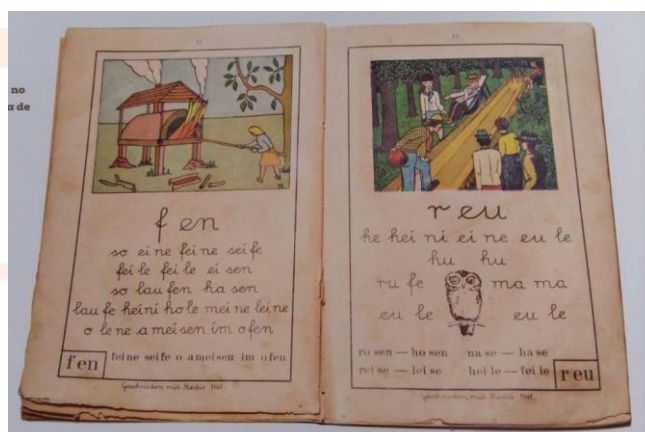 no
a de
f en
so ei ne fei ne sei fe
fei le fei le ei sen
so lau fen ha sen
lau fe heini ho le mei ne leine
o le ne a mei sen im o fen
f en
feine seife o ameisen im ofen
r eu
he hei ni ei ne eu le
hu hu
ru fe ma ma
eu le eu le
ro sen — ho sen na se — ha se
rei se — lei se hei le — fei le
r eu
1941.
1941.